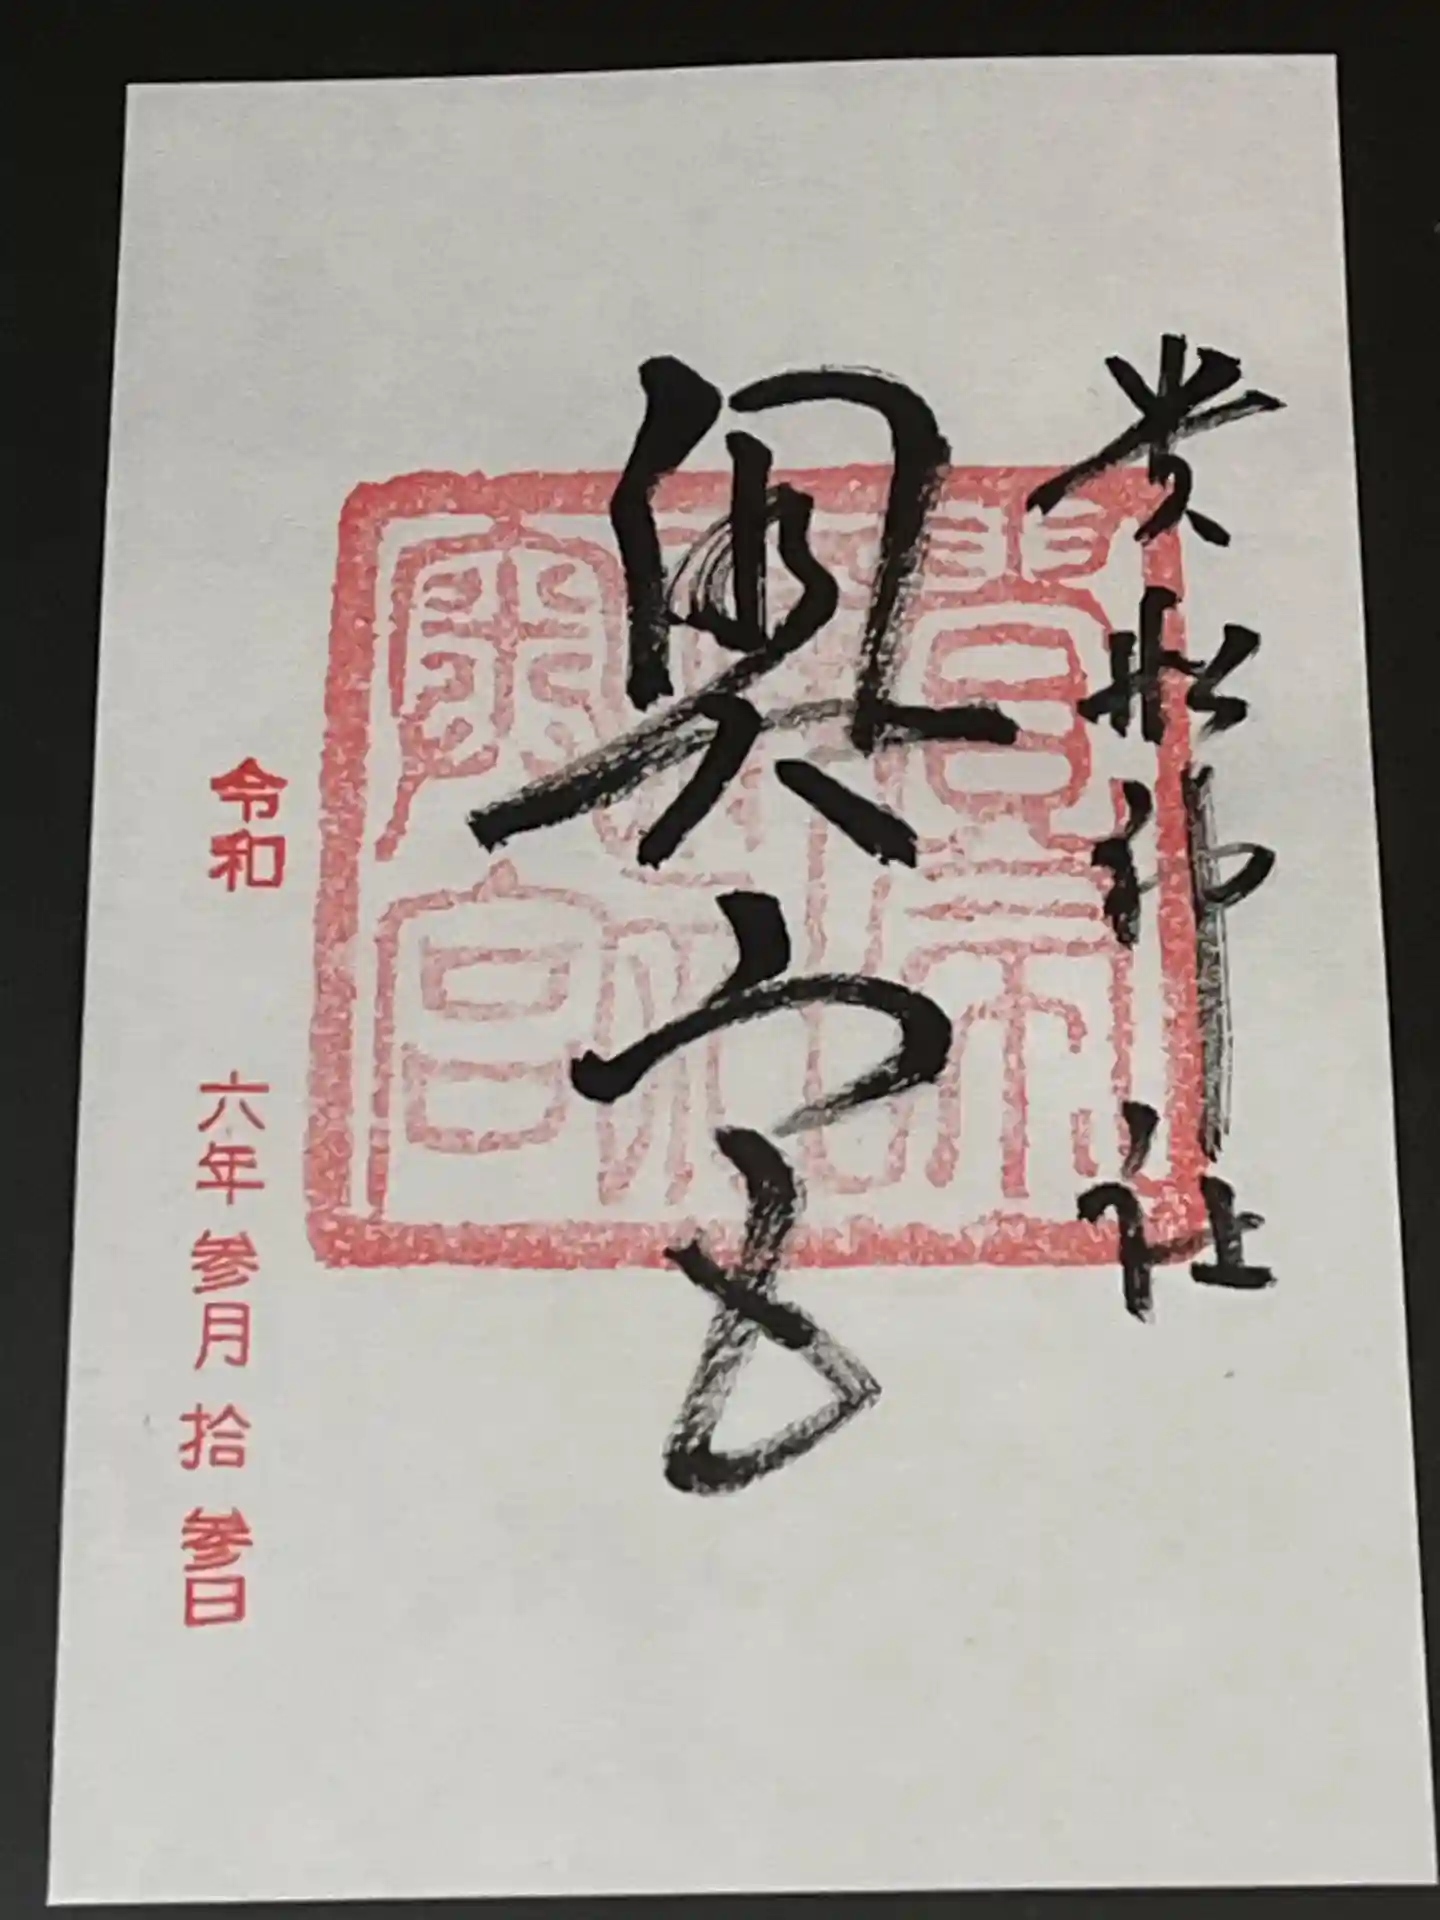 貴船神社
奥宮
令和 六年 参月 拾参日